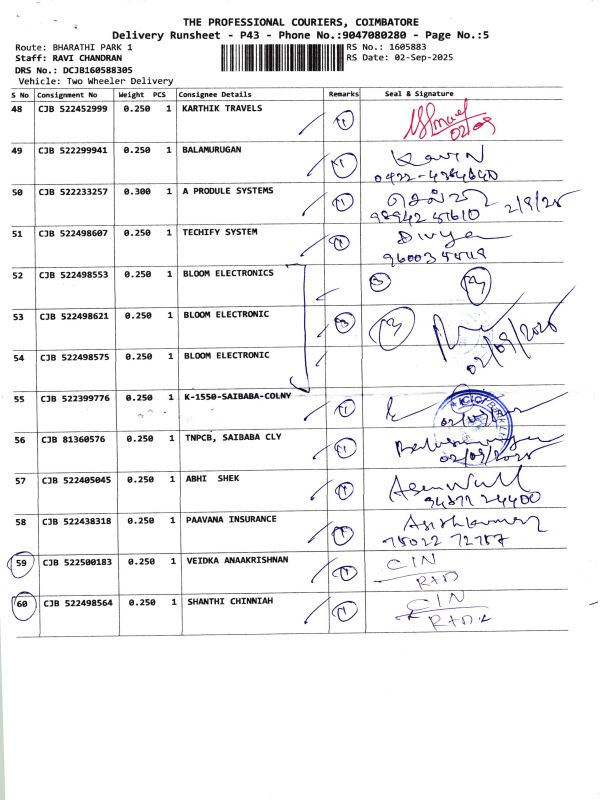 THE PROFESSIONAL COURIERS, COIMBATORE
Delivery Runsheet - P43 - Phone No.:9047080280 - Page No.:5
Route: BHARATHI PARK 1 RS No.: 1605883
Staff: RAVI CHANDRAN RS Date: 02-Sep-2025
DRS No.: DCJB160588305
Vehicle: Two Wheeler Delivery
S No Consignment No Weight PCS Consignee Details Remarks Seal & Signature
48 CJB 522452999 0.250 1 KARTHIK TRAVELS 1
02/09
49 CJB 522299941 0.250 1 BALAMURUGAN 1 Kavin
0422-4984640
50 CJB 522233257 0.300 1 A PRODULE SYSTEMS 1 செல்வி 2/9/25
51 CJB 522498607 0.250 1 TECHIFY SYSTEM 1 Divya
52 CJB 522498553 0.250 1 BLOOM ELECTRONICS 3
53 CJB 522498621 0.250 1 BLOOM ELECTRONIC 3 3
02/09/2025
54 CJB 522498575 0.250 1 BLOOM ELECTRONIC
55 CJB 522399776 0.250 1 K-1550-SAIBABA-COLNY 1
56 CJB 81360576 0.250 1 TNPCB, SAIBABA CLY 1
02/09/2025
57 CJB 522405045 0.250 1 ABHI SHEK 1
94877 24400
58 CJB 522438318 0.250 1 PAAVANA INSURANCE 1 Asishkumar
75022 72787
59 CJB 522500183 0.250 1 VEIDKA ANAAKRISHNAN 1 CIN
60 CJB 522498564 0.250 1 SHANTHI CHINNIAH 1 CIN